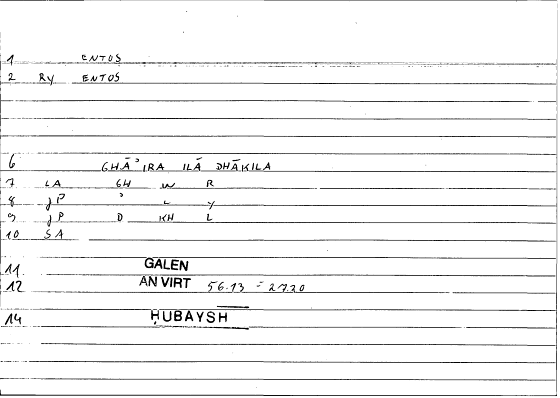 1 ENTOS
2 Ry ENTOS
6 GHĀʾIRA ILĀ DHĀKILA
7 LA GH W R
8 JP ʾ L Y
9 JP D KH L
10 SA
11. GALEN
12 AN VIRT 56.13 = 27.20
14 ḤUBAYSH